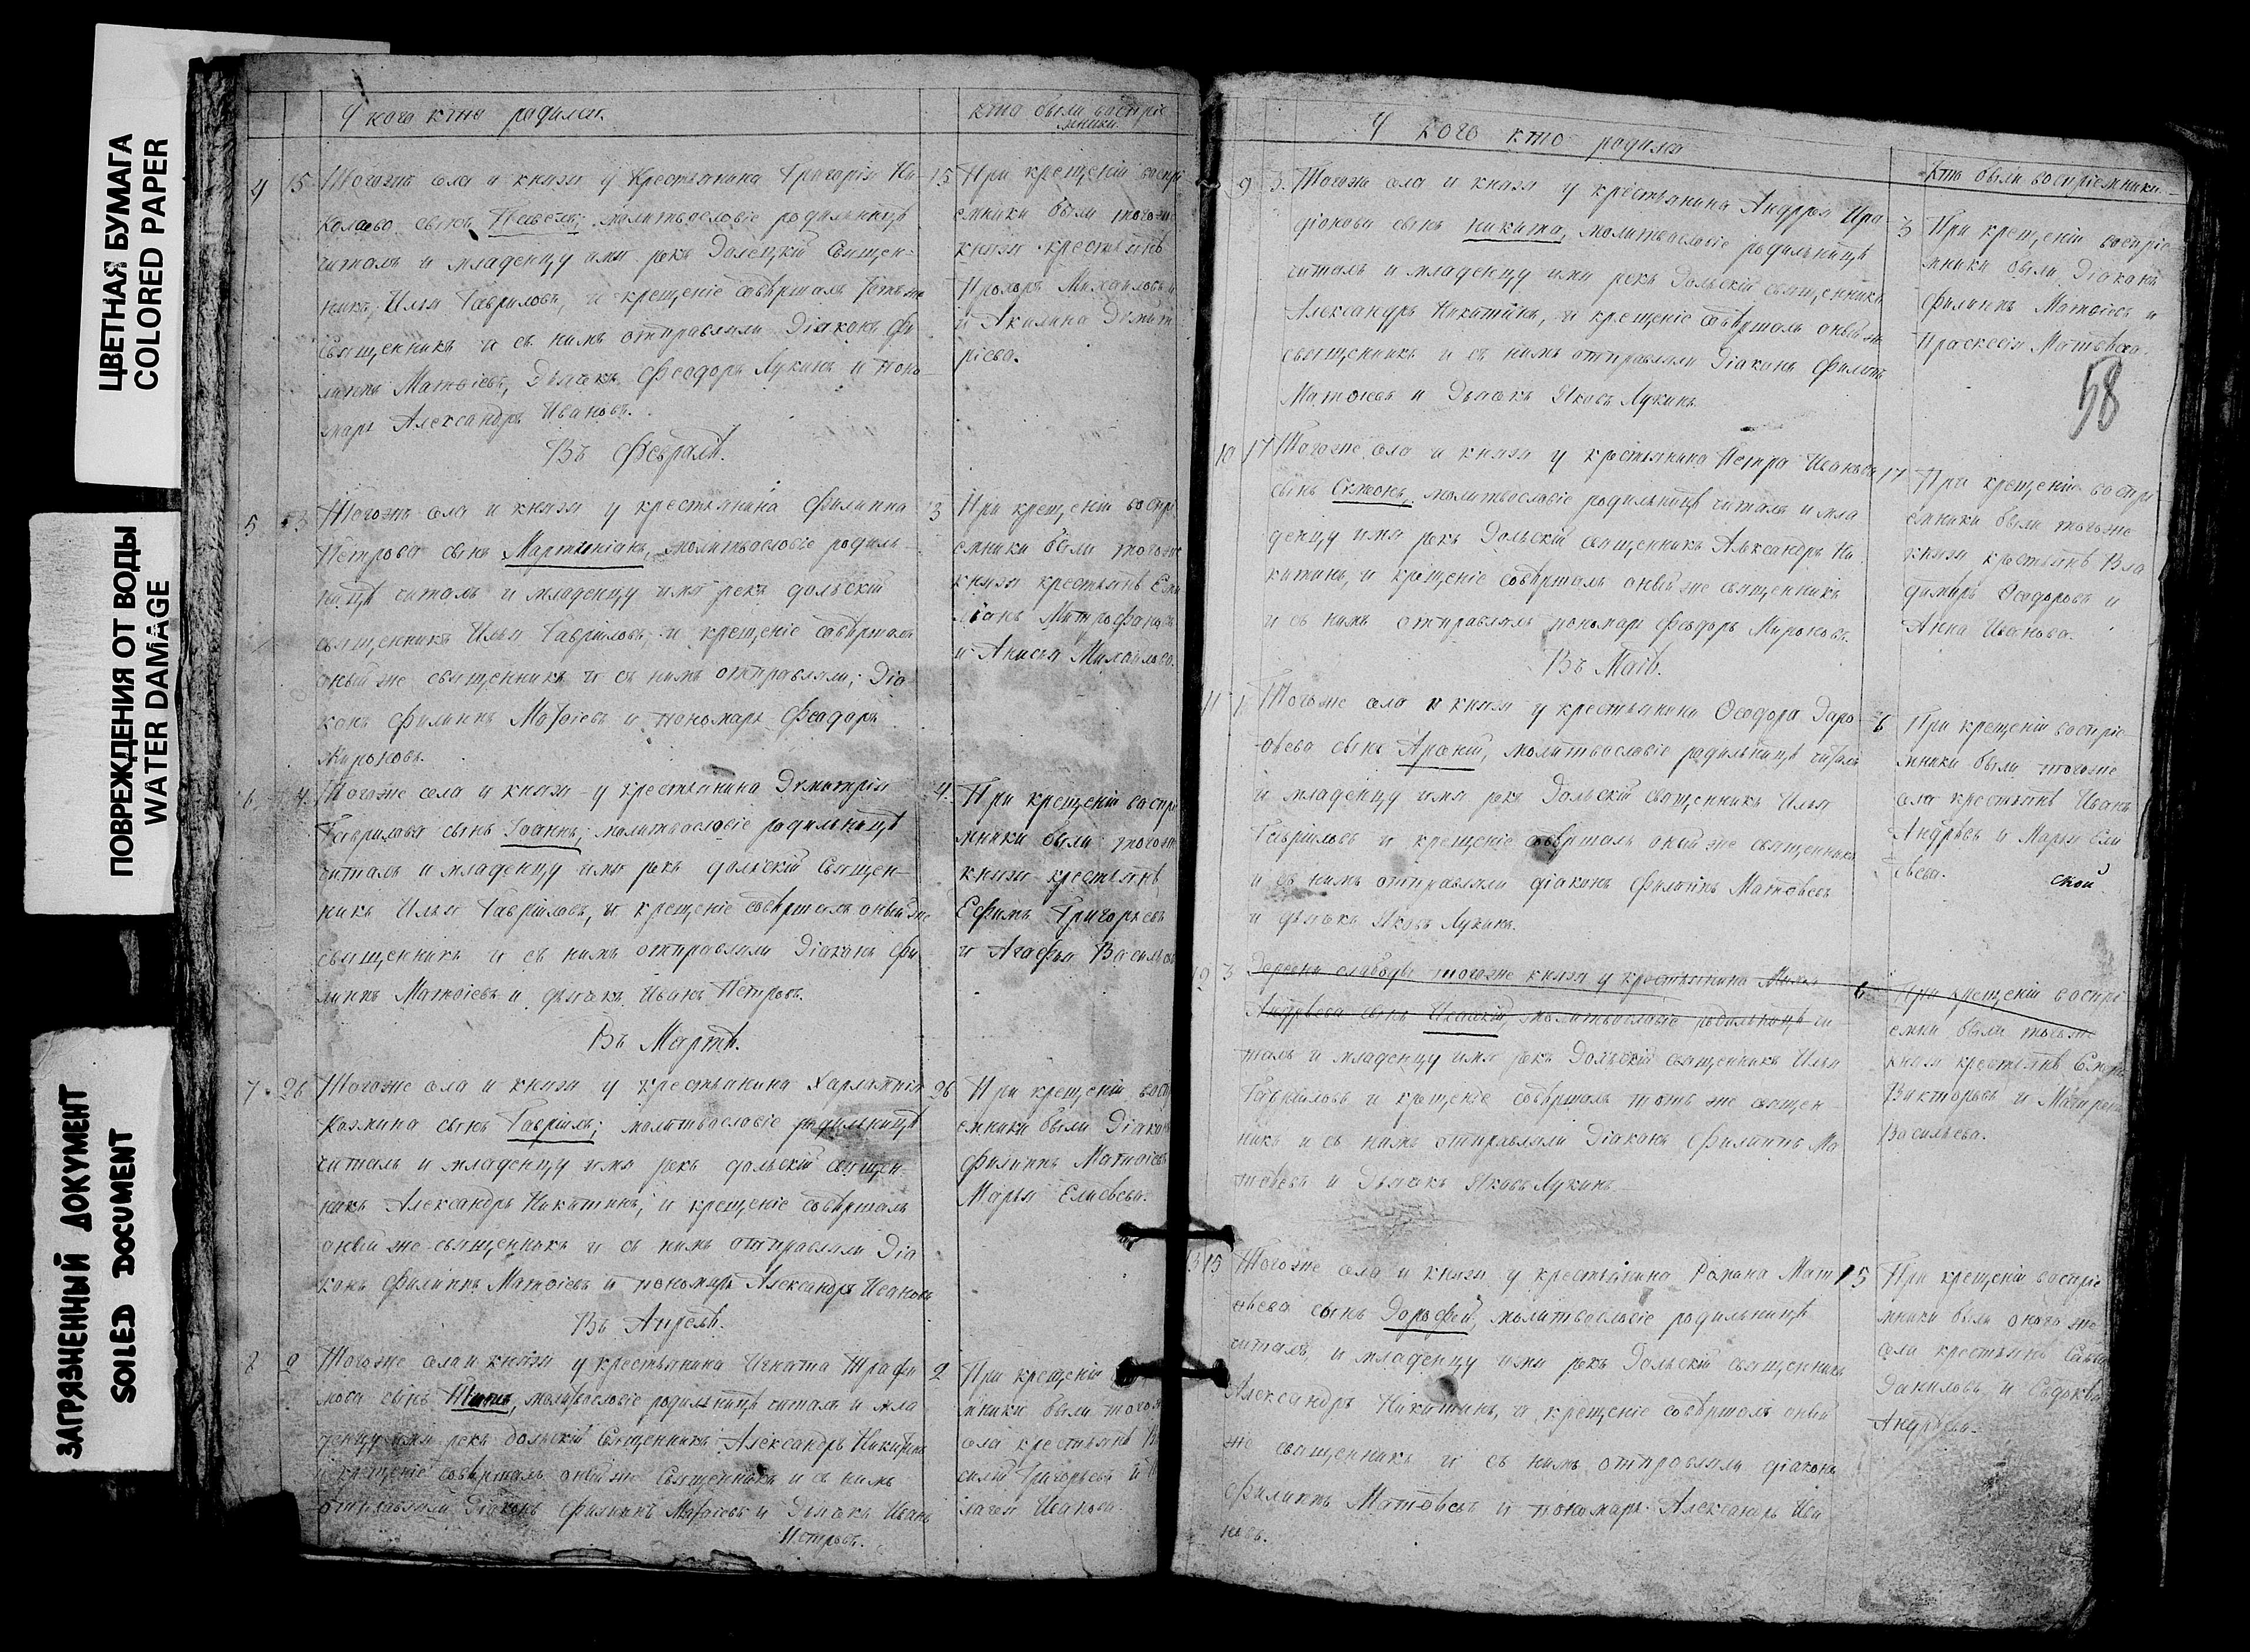 ЦВЕТНАЯ БУМАГА
COLORED PAPER
ПОВРЕЖДЕНИЯ ОТ ВОДЫ
WATER DAMAGE
ЗАГРЯЗНЕННЫЙ ДОКУМЕНТ
SOILED DOCUMENT
У кого кто родился
кто были воспріе
мники
4 15 Тогожъ села и князя у Крестьянина Григорія Ни-
колаева сынъ Павелъ; молитвословіе родильницѣ
читалъ и младенцу имя рекъ Долецкій Священ-
никъ, Илья Гавриловъ, и крещеніе совершалъ тотъ же
священникъ и съ нимъ отправляли Діаконъ Фи
липпъ Матѳіевъ, Дьячекъ Ѳеодоръ Лукинъ и поно-
марь Александръ Ивановъ.
15 При крещеніи воспрі
емники были тогоже
князя крестьянѣ
Прохоръ Михайловъ
и Акилина Дмит
ріева.
Въ Февралѣ.
5 13 Тогожъ села и князя у крестьянина Филиппа
Петрова сынъ Мартиніанъ, молитвословіе родиль-
ницѣ читалъ и младенцу имя рекъ дольскій
священникъ Илья Гавріиловъ, и крещеніе совершалъ
оный же священникъ и съ нимъ отправляли; Діа
конъ Филиппъ Матѳіевъ и пономарь Ѳеодоръ
Мироновъ.
13 При крещеніи воспрі
емники были тогоже
князя крестьянѣ Еми
ліанъ Митрофановъ
и Анисья Михайлова.
6 4. Тогоже села и князя у крестьянина Димитрія
Гаврилова сынъ Іоаннъ; молитвословіе родильницѣ
читалъ и младенцу имя рекъ дольскій Священ-
никъ Илья Гавріиловъ, и крещеніе совершалъ оный же
священникъ и съ нимъ отправляли Діаконъ Фи
липпъ Матѳіевъ и дьячекъ Иванъ Петровъ.
4. При крещеніи воспріе
мники были тогоже
князя крестьянѣ
Ефимъ Григорьевъ
и Агафья Васильева
Въ Мартѣ.
7. 26 Тогоже села и князя у крестьянина Харлампія
Козмина сынъ Гавріилъ; молитвословіе родильницѣ
читалъ и младенцу имя рекъ дольскій Священ-
никъ Александръ Никитинъ; и крещеніе совершалъ
оный же священникъ и съ нимъ отправляли Діа
конъ Филиппъ Матѳіевъ и пономарь Александръ Ивановъ
26 При крещеніи воспрі
емники были Діаконъ
Филиппъ Матѳіевъ
Марья Елисѣева.
Въ Апрелѣ.
8 2 Тогоже села и князя у крестьянина Игната Трофи
мова сынъ молитвословіе родильницѣ читалъ и мла
денцу имя рекъ дольскій Священникъ Александръ Никитинъ
и крещеніе совершалъ оный же Священникъ и съ нимъ
отправляли Діаконъ Филиппъ Матѳіевъ и Дьячекъ Иванъ
Петровъ.
2 При крещеніи
мники были тогоже
села крестьянѣ
силій Григорьевъ и
Иванова.
У кого кто родился
Кто были воспріемники
58
9 3. Тогоже села и князя у крестьянина Андрея Ира
діонова сынъ Никита, молитвословіе родильницѣ
читалъ и младенцу имя рекъ Дольскій священникъ
Александръ Никитинъ, и крещеніе совершалъ оный же
священникъ и съ нимъ отправляли Діаконъ Филиппъ
Матѳіевъ и Дьячекъ Яковъ Лукинъ.
3 При крещеніи воспріе
мники были Діаконъ
Филиппъ Матвіевъ и
Прасковія Матвѣева.
10 17 Тогоже села и князя у крестьянина Петра Иванова
сынъ Симеонъ, молитвословіе родильницѣ читалъ и мла
денцу имя рекъ Дольскій священникъ Александръ Ни
китинъ, и крещеніе совершалъ оный же священникъ
и съ нимъ отправлялъ пономарь Ѳеодоръ Мироновъ.
17 При крещеніи воспрі
емники были тогоже
князя крестьянѣ Вла
димиръ Ѳеодоровъ и
Анна Иванова.
Въ Маѣ.
11 Тогоже села и князя у крестьянина Ѳеодора Доро-
ѳѣева сынъ Арсеній, молитвословіе родильницѣ читалъ
и младенцу имя рекъ Дольскій священникъ Илья
Гавріиловъ и крещеніе совершалъ оный же священникъ
и съ нимъ отправляли діаконъ Филиппъ Матвѣевъ
и дьячекъ Яковъ Лукинъ.
6 При крещеніи воспріе
мники были тогоже
села крестьянѣ Иванъ
Андрѣевъ и Марья Ели
сѣева.
Деревни слободы тогоже князя у крестьянина
Андрѣева сынъ молитвословіе родильницѣ чи
талъ и младенцу имя рекъ Дольскій священникъ Илья
Гавріиловъ и крещеніе совершалъ тотъ же священ-
никъ и съ нимъ отправляли Діаконъ Филиппъ Ма
твѣевъ и Дьячекъ Яковъ Лукинъ
6 При крещеніи воспрі
емни были тогоже
князя крестьянѣ
Викторовъ и
Васильева.
15 Тогоже села и князя у крестьянина Романа Мат
вѣева сынъ Дороѳей, молитвословіе родильницѣ
читалъ, и младенцу имя рекъ Дольскій священникъ
Александръ Никитинъ, и крещеніе совершалъ оный
же священникъ и съ нимъ отправляли діаконъ
Филиппъ Матвѣевъ и пономарь Александръ Ива
новъ.
15 При крещеніи воспріе
мники были оного же
села крестьянѣ Савва
Даниловъ, и Евдокія
Андрѣева